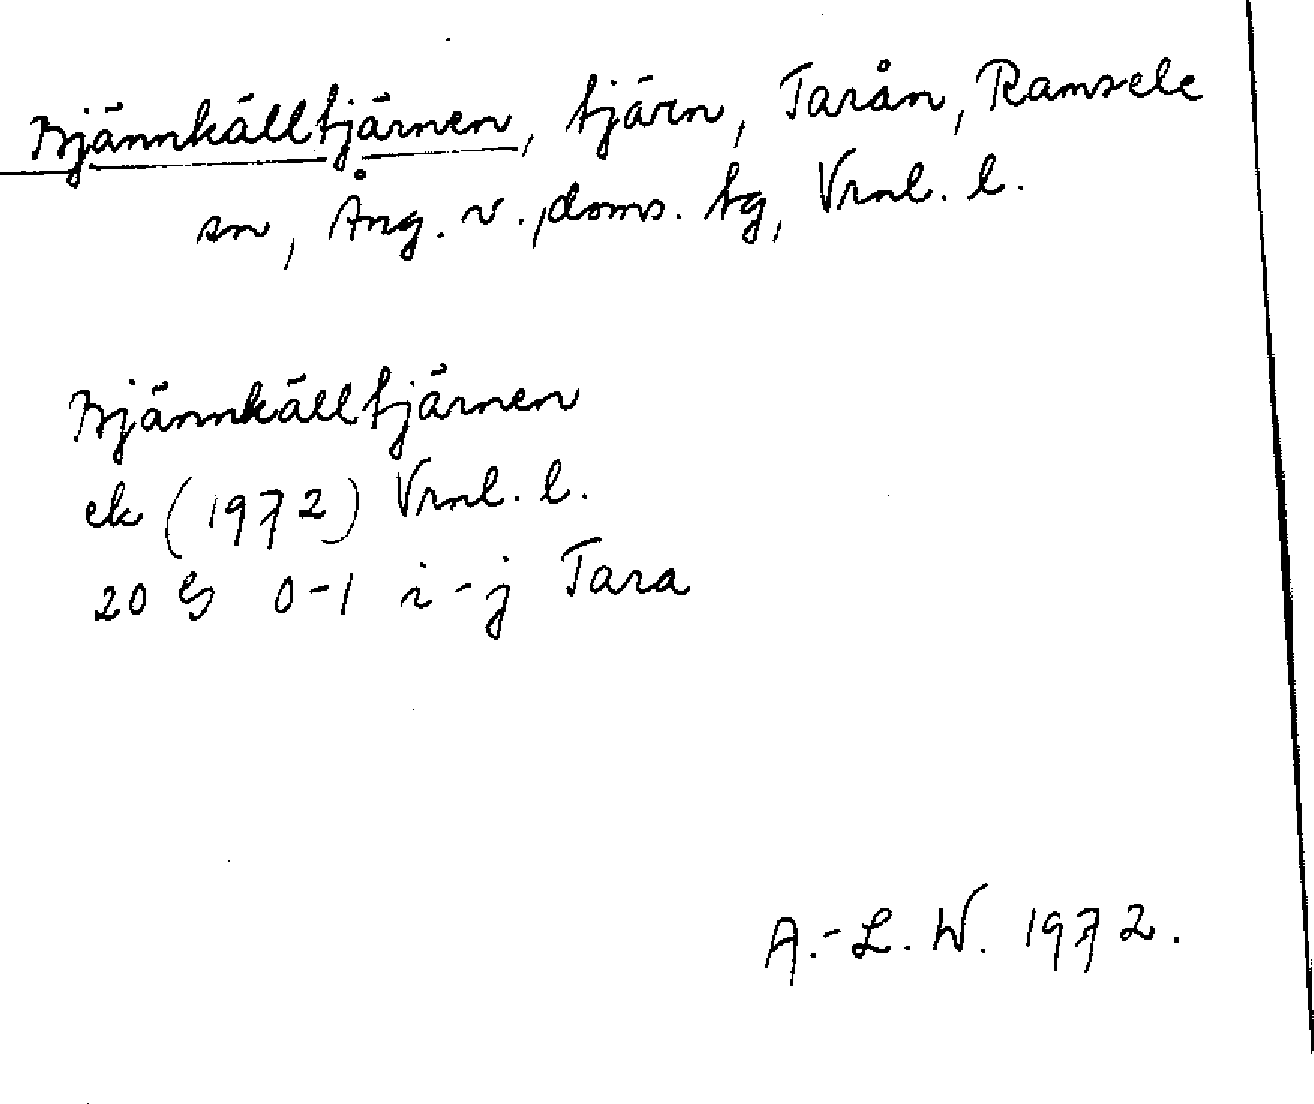 Bjännkälltjärnen, tjärn, Tarån, Ramsele
sn, Ång. v. doms. tg, Vrnl. l.
Bjännkälltjärnen
ek (1972) Vrnl. l.
20 G 0-1 i-j Tara
A.-L. W. 1972.